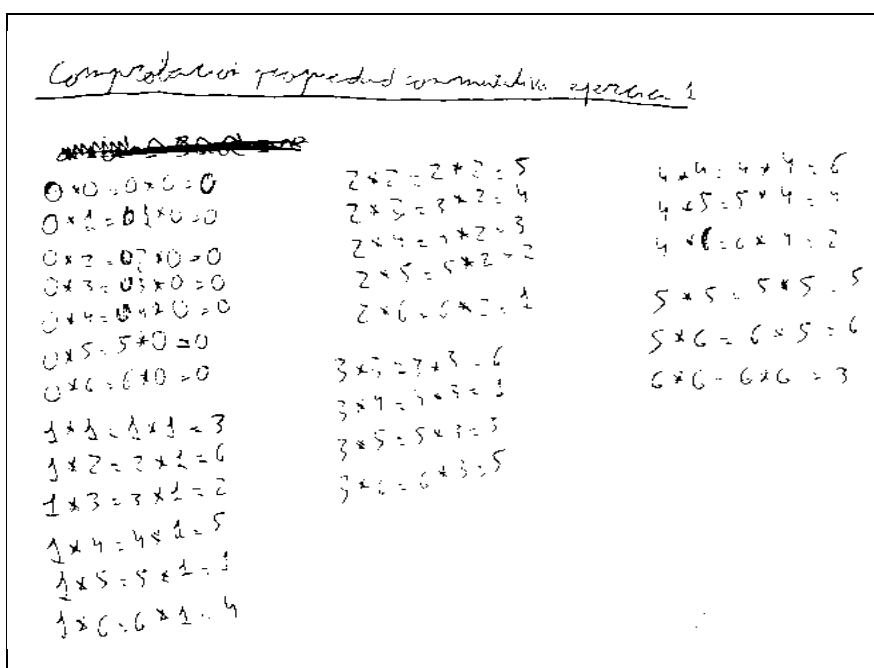 Comprobación propiedad conmutativa ejercicio 1
0*0=0*0=0
0*1=01*0=0
0*2=02*0=0
0*3=03*0=0
0*4=04*0=0
0*5=5*0=0
0*6=6*0=0
1*1=1*1=3
1*2=2*1=6
1*3=3*1=2
1*4=4*1=5
1*5=5*1=1
1*6=6*1=4
2*2=2*2=5
2*3=3*2=4
2*4=4*2=3
2*5=5*2=2
2*6=6*2=1
3*3=3*3=6
3*4=4*3=1
3*5=5*3=3
3*6=6*3=5
4*4=4*4=6
4*5=5*4=4
4*6=6*4=2
5*5=5*5=5
5*6=6*5=6
6*6=6*6=3